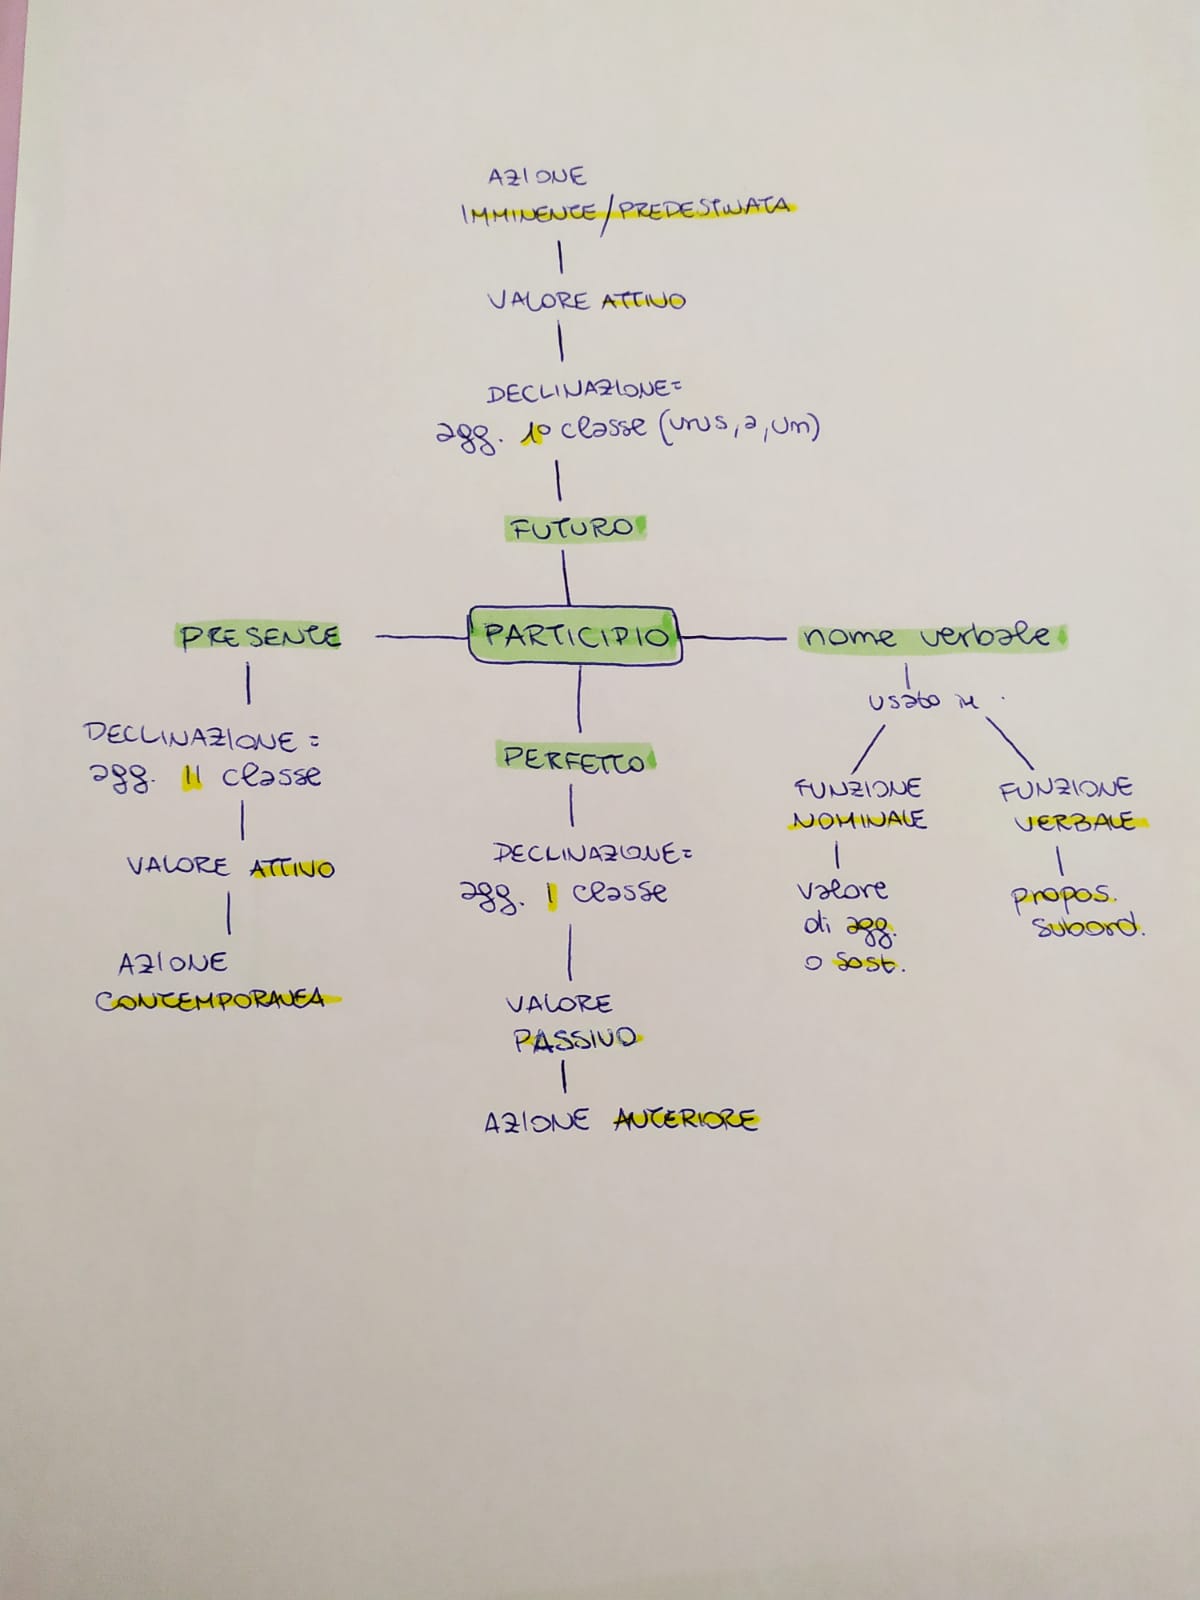 AZIONE
IMMINENTE/PREDESTINATA
VALORE ATTIVO
DECLINAZIONE=
agg. 1° classe (urus, a, um)
FUTURO
PRESENTE
PARTICIPIO
nome verbale
DECLINAZIONE=
agg. II classe
VALORE ATTIVO
AZIONE
CONTEMPORANEA
PERFETTO
DECLINAZIONE=
agg. I classe
VALORE
PASSIVO
AZIONE ANTERIORE
usato in
FUNZIONE
NOMINALE
valore
di agg.
o sost.
FUNZIONE
VERBALE
propos.
subord.